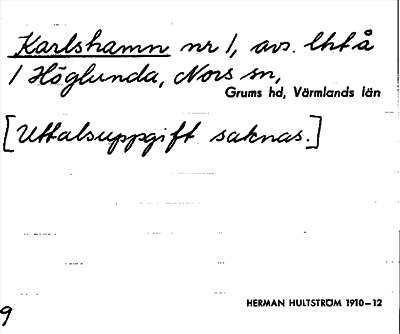 Karlshamn nr 1, avs. lht å
1 Höglunda, Nors sn,
Grums hd, Värmlands län
[Uttalsuppgift saknas.]
HERMAN HULTSTRÖM 1910-12
9